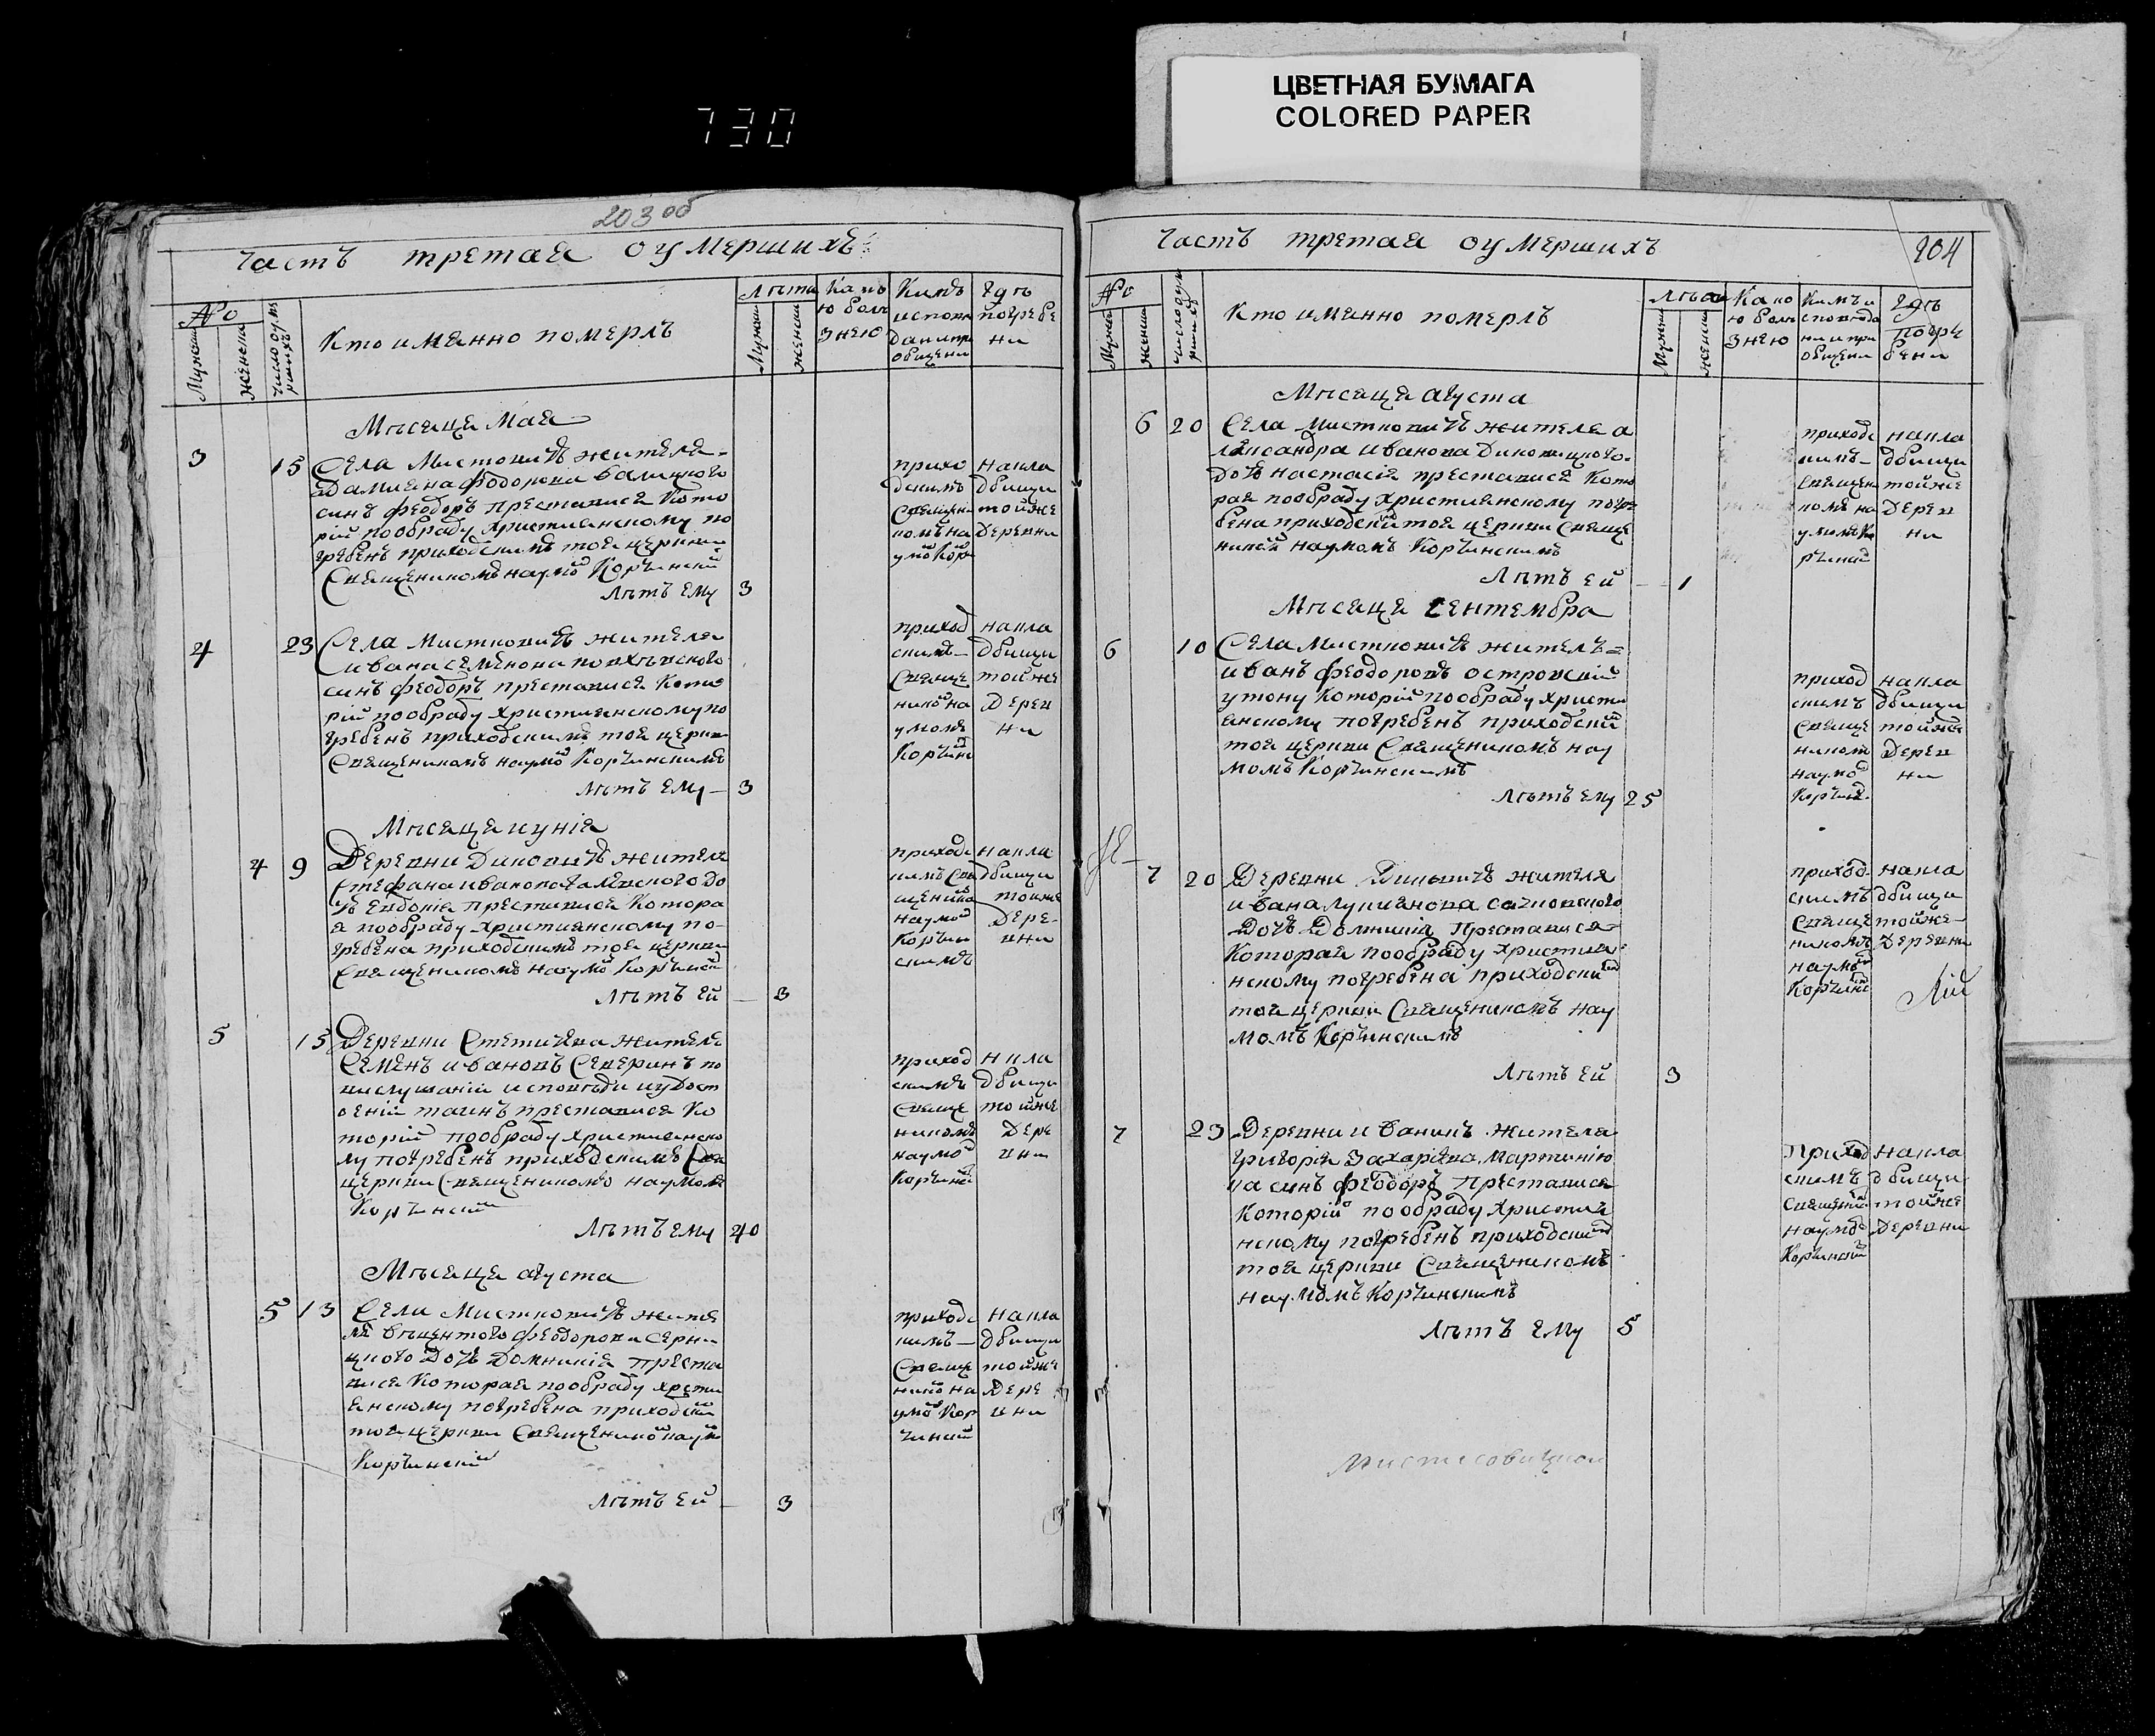 730
ЦВЕТНАЯ БУМАГА
COLORED PAPER
203 об
Часть третая оумершихъ
№
Мужеска
женска
число умершихъ
Кто имянно померлъ
Лѣта
Мужеска
женска
Како
ю болѣ
знею
Кимъ
исповѣ
дани при
общени
Гдѣ
погребе
ни
Мѣсяца Мая
3 15 Села Мистковичъ жителя
Дамияна Федорова
синъ феодоръ преставися Кото
рій пообраду християнскому по
гребенъ приходскимъ тоя церкви
Священикомъ наумо Корчинскій
Лѣтъ ему 3
прихо
дскимъ
Священи
комъ на
умо Корч
накла
дбищи
тойже
Деревни
4 23 Села Мистковичъ жителя
ивана семѣнова
синъ феодоръ преставися Кото
рій пообраду християнскому по
гребенъ приходскимъ тоя церкви
Священикомъ наумо Корчинскимъ
Лѣтъ ему 3
приход
скимъ
Свяще
нико на
умомъ
Корчинс
накла
дбищи
тойже
Дерев
ни
Мѣсяца иунія
4 9 Деревни Дикович жителя
Стефана иванова до
чъ Евдокія преставися Котора
я пообраду християнскому по
гребена приходскимъ тоя церкви
Священикомъ наумо Корчинскій
Лѣтъ ей 3
приходс
кимъ Свя
щенико
наумо
Корчин
скимъ
накла
дбищи
тойже
Дере
вни
5 15 Деревни жителъ
Семѣнъ ивановъ Северинъ по
вислушаніи исповѣди иудост
оеній таинъ преставися Ко
торій пообраду християнско
му погребенъ приходскимъ
церкви Священикомъ наумомъ
Корчинскій
Лѣтъ ему 40
приход
скимъ
Свяще
никомъ
наумо
Корчинс
накла
дбищи
тойже
Дере
вни
Мѣсяца августа
5 13 Села Мистковичъ жите
ля феодорова
Дочъ Домникія преста
вися Которая пообраду христи
янскому погребена приходский
тоя церкви Священико наумо
Корчинскій
Лѣтъ ей 3
приходс
кимъ
Священ
нико на
умо Кор
чинскій
накла
дбищи
тойже
Дере
вни
Часть третая оумершихъ
204
№
Мужес
женска
число умершихъ
Кто имянно померлъ
Лѣта
Мужеска
женска
Како
ю болѣ
знею
Кимъ и
сповѣда
ни и при
общени
Гдѣ
погре
бени
Мѣсяца августа
6 20 Села Мистковичъ жителя а
лександра иванова
Дочъ настасія преставися Кото
рая пообраду християнскому погре
бена приходский тоя церкви Свяще
никой наумомъ Корчинскимъ
Лѣтъ ей 1
приходс
кимъ
Священ
комъ на
умомъ Ко
рчинс
накла
дбищи
тойже
Дерев
ни
Мѣсяца Сентембра
6 10 Села Мистковичъ жителъ
иванъ феодоровъ островскій
утону Которій пообраду христи
янскому погребенъ приходский
тоя церкви Священикомъ нау
момъ Корчинскимъ
Лѣтъ ему 25
приход
скимъ
Свяще
никомъ
наумо
Корчинс
накла
дбищи
тойже
Дерев
ни
7 20 Деревни Диковичъ жителя
ивана лукиянова сачковского
Дочъ Домникія Преставися
Которая пообраду христия
нскому погребена приходский
тоя церкви Священикомъ нау
момъ Корчинскимъ
Лѣтъ ей 3
приход
скимъ
Свяще
никомъ
наумъ
Корчинс
накла
дбищи
тойже
Деревни
7 23 Деревни иваникъ жителя
григорія Захарѣева Мартинію
ка синъ феодоръ Преставися
Которій пообраду христия
нскому погребенъ приходский
тоя церкви Священикомъ
наумомъ Корчинскимъ
Лѣтъ ему 5
Приход
скимъ
Священи
наумо
Корчинскій
накла
дбищи
тойже
Деревни